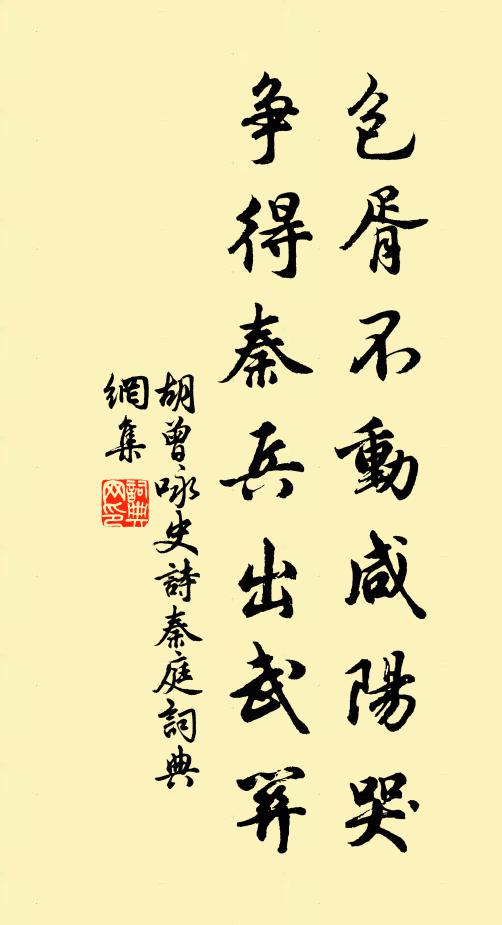 包胥不動咸陽哭
争得秦兵出武關
胡曾咏史詩秦庭詞典
網集
詞典
网印